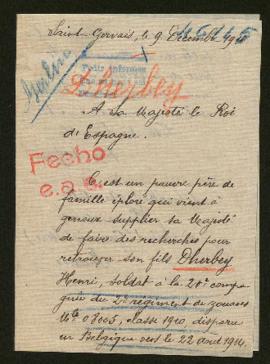 Saint-Gervais, le 9 Décembre
Berlin
Dherbey
A Sa Majesté le Roi
d'Espagne.
Fecho
C'est un pauvre père de
famille éploré qui vient à
genoux supplier Sa Majesté
de faire des recherches pour
retrouver son fils Dherbey
Henri, soldat à la 21e compa
gnie du régiment de zouaves
classe 1910 disparu
en Belgique vers le 22 août 1914.